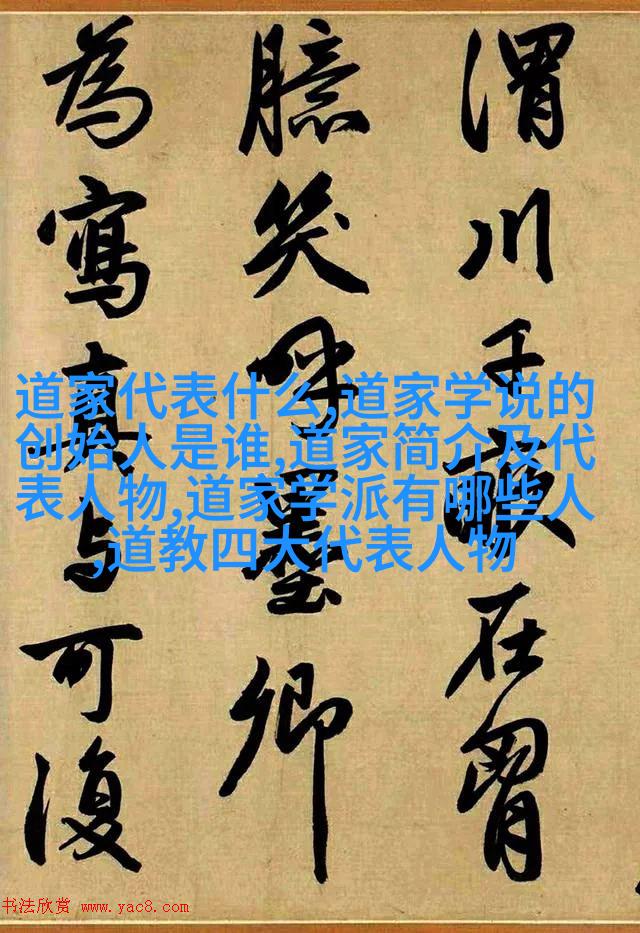 渭川千畝在胷
臆笑呼墨卿
為寫真与可復
道家代表什么,道家学说的
创始人是谁,道家简介及代
表人物,道家学派有哪些人
,道教四大代表人物
书法欣赏 www.yac8.com